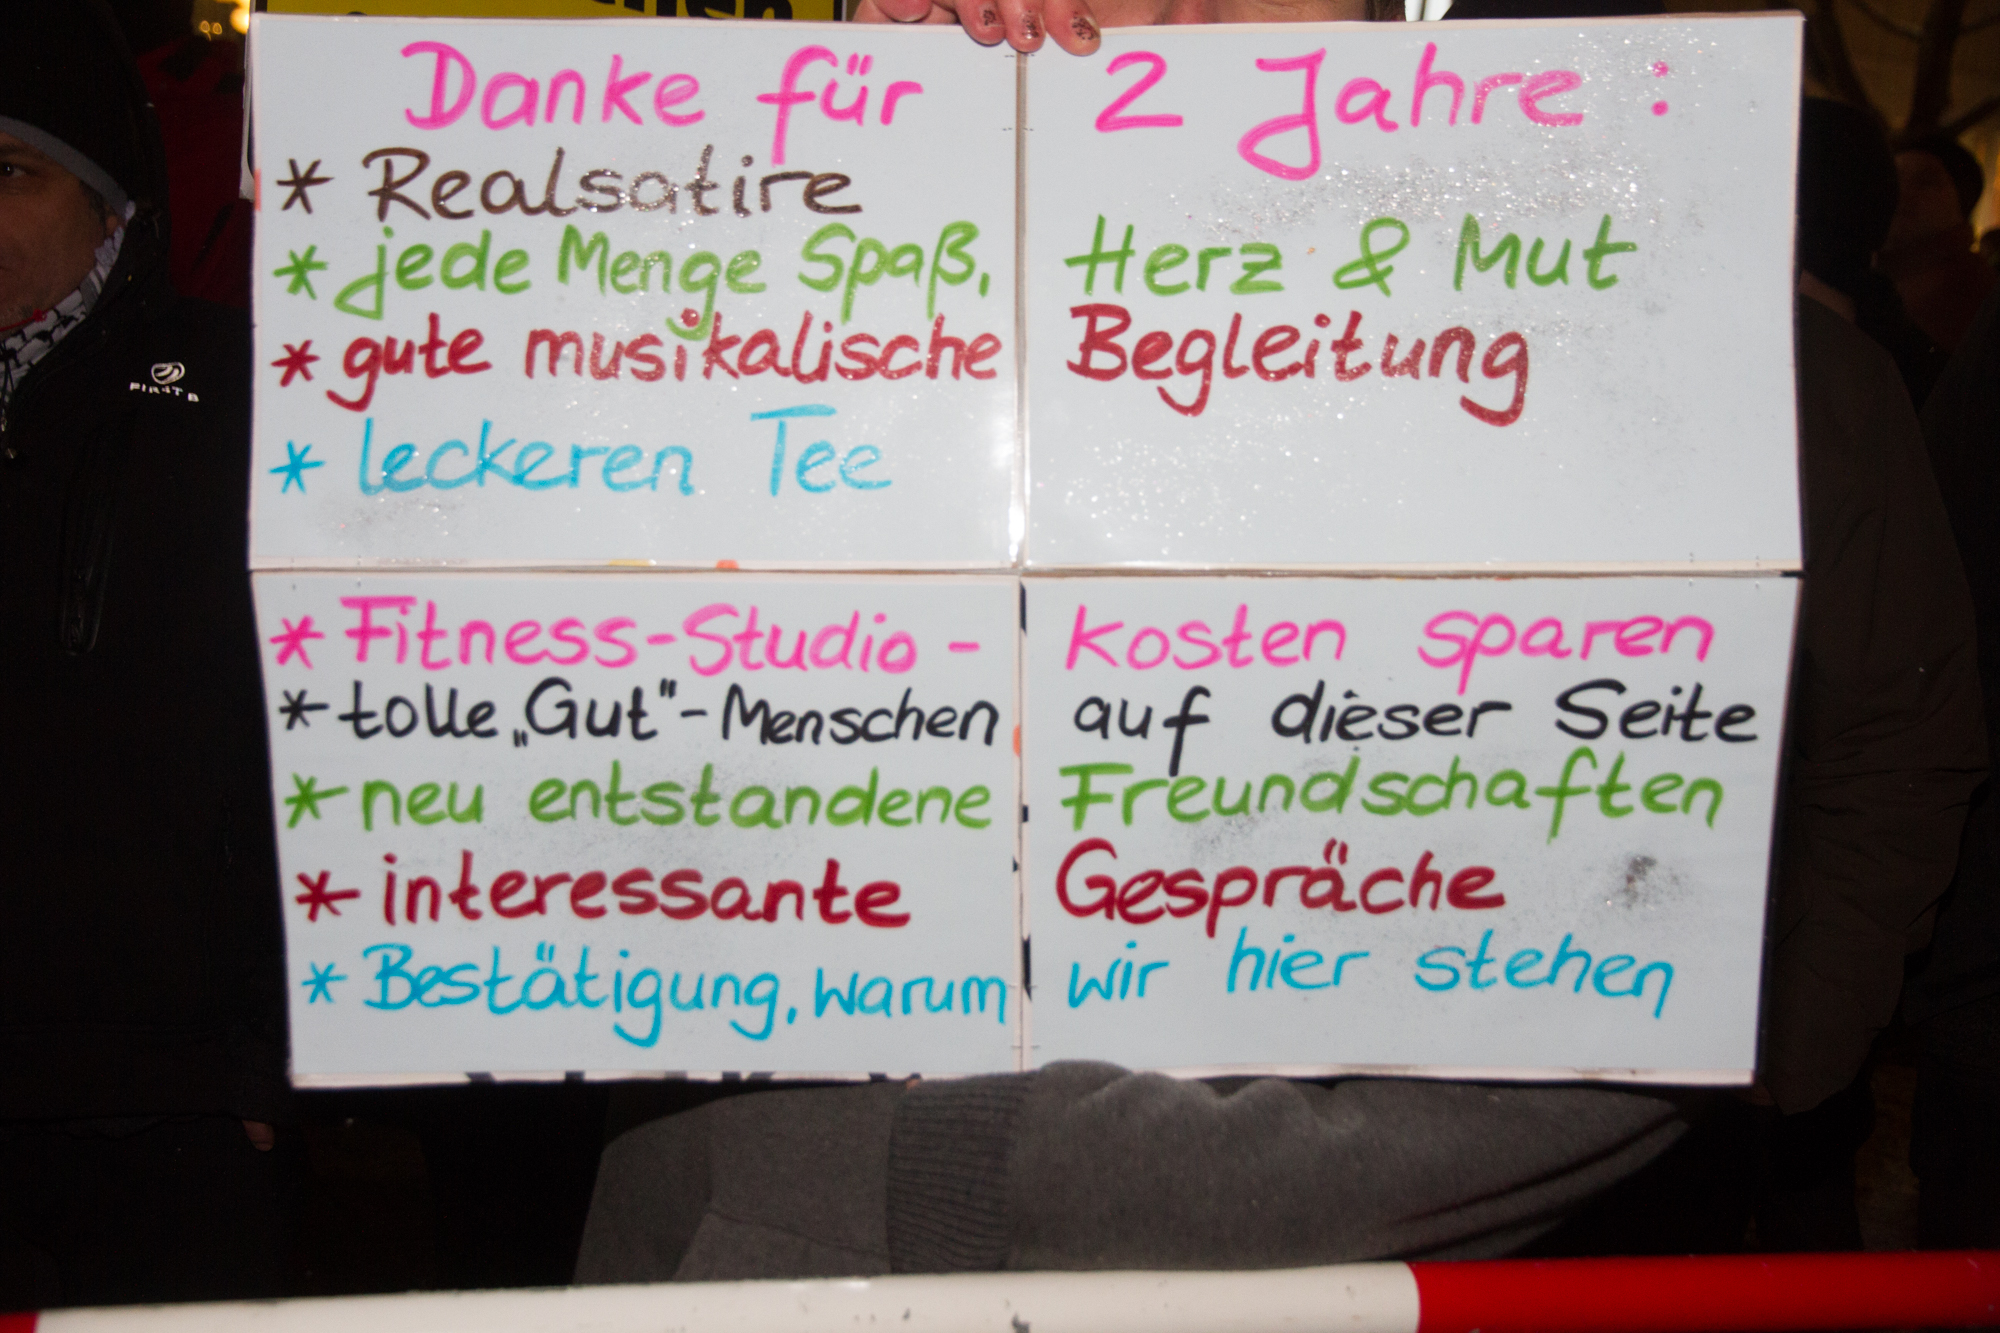 Danke für 2 Jahre :
* Realsatire
* jede Menge Spaß, Herz & Mut
* gute musikalische Begleitung
* leckeren Tee
* Fitness-Studio - kosten sparen
* tolle „Gut"-Menschen auf dieser Seite
* neu entstandene Freundschaften
* interessante Gespräche
* Bestätigung, warum wir hier stehen